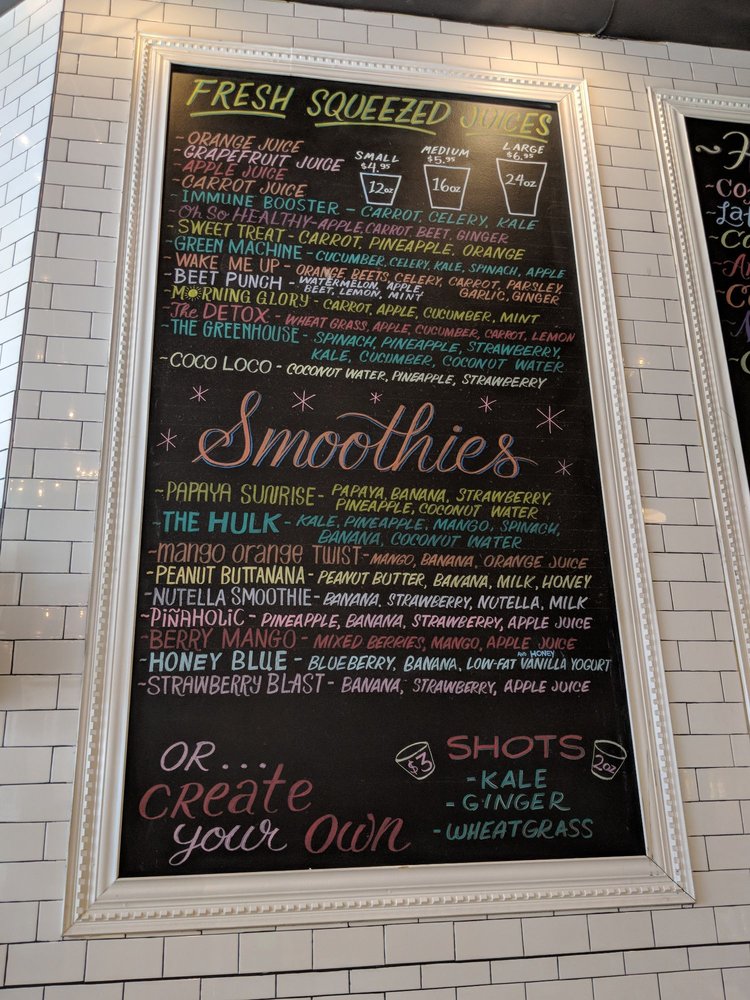 FRESH SQUEEZED JUICES
- ORANGE JUICE
- GRAPEFRUIT JUICE
- APPLE JUICE
- CARROT JUICE
SMALL
$4.95
12oz
MEDIUM
$5.95
16oz
LARGE
$6.95
24oz
- IMMUNE BOOSTER - CARROT, CELERY, KALE
- Oh So HEALTHY - APPLE, CARROT, BEET, GINGER
- SWEET TREAT - CARROT, PINEAPPLE, ORANGE
- GREEN MACHINE - CUCUMBER, CELERY, KALE, SPINACH, APPLE
- WAKE ME UP - ORANGE, BEETS, CELERY, CARROT, PARSLEY,
GARLIC, GINGER
- BEET PUNCH - WATERMELON, APPLE,
BEET, LEMON, MINT
- MORNING GLORY - CARROT, APPLE, CUCUMBER, MINT
- The DETOX - WHEAT GRASS, APPLE, CUCUMBER, CARROT, LEMON
- THE GREENHOUSE - SPINACH, PINEAPPLE, STRAWBERRY,
KALE, CUCUMBER, COCONUT WATER
- COCO LOCO - COCONUT WATER, PINEAPPLE, STRAWBERRY
Smoothies
~ PAPAYA SUNRISE - PAPAYA, BANANA, STRAWBERRY,
PINEAPPLE, COCONUT WATER
- THE HULK - KALE, PINEAPPLE, MANGO, SPINACH,
BANANA, COCONUT WATER
- mango orange TWIST - MANGO, BANANA, ORANGE JUICE
- PEANUT BUTTANANA - PEANUT BUTTER, BANANA, MILK, HONEY
- NUTELLA SMOOTHIE - BANANA, STRAWBERRY, NUTELLA, MILK
- PiÑAHOLiC - PINEAPPLE, BANANA, STRAWBERRY, APPLE JUICE
- BERRY MANGO - MIXED BERRIES, MANGO, APPLE JUICE
- HONEY BLUE - BLUEBERRY, BANANA, LOW-FAT VANILLA YOGURT AND HONEY
- STRAWBERRY BLAST - BANANA, STRAWBERRY, APPLE JUICE
OR...
Create
your OWN
$3 SHOTS 2oz
- KALE
- GINGER
- WHEATGRASS